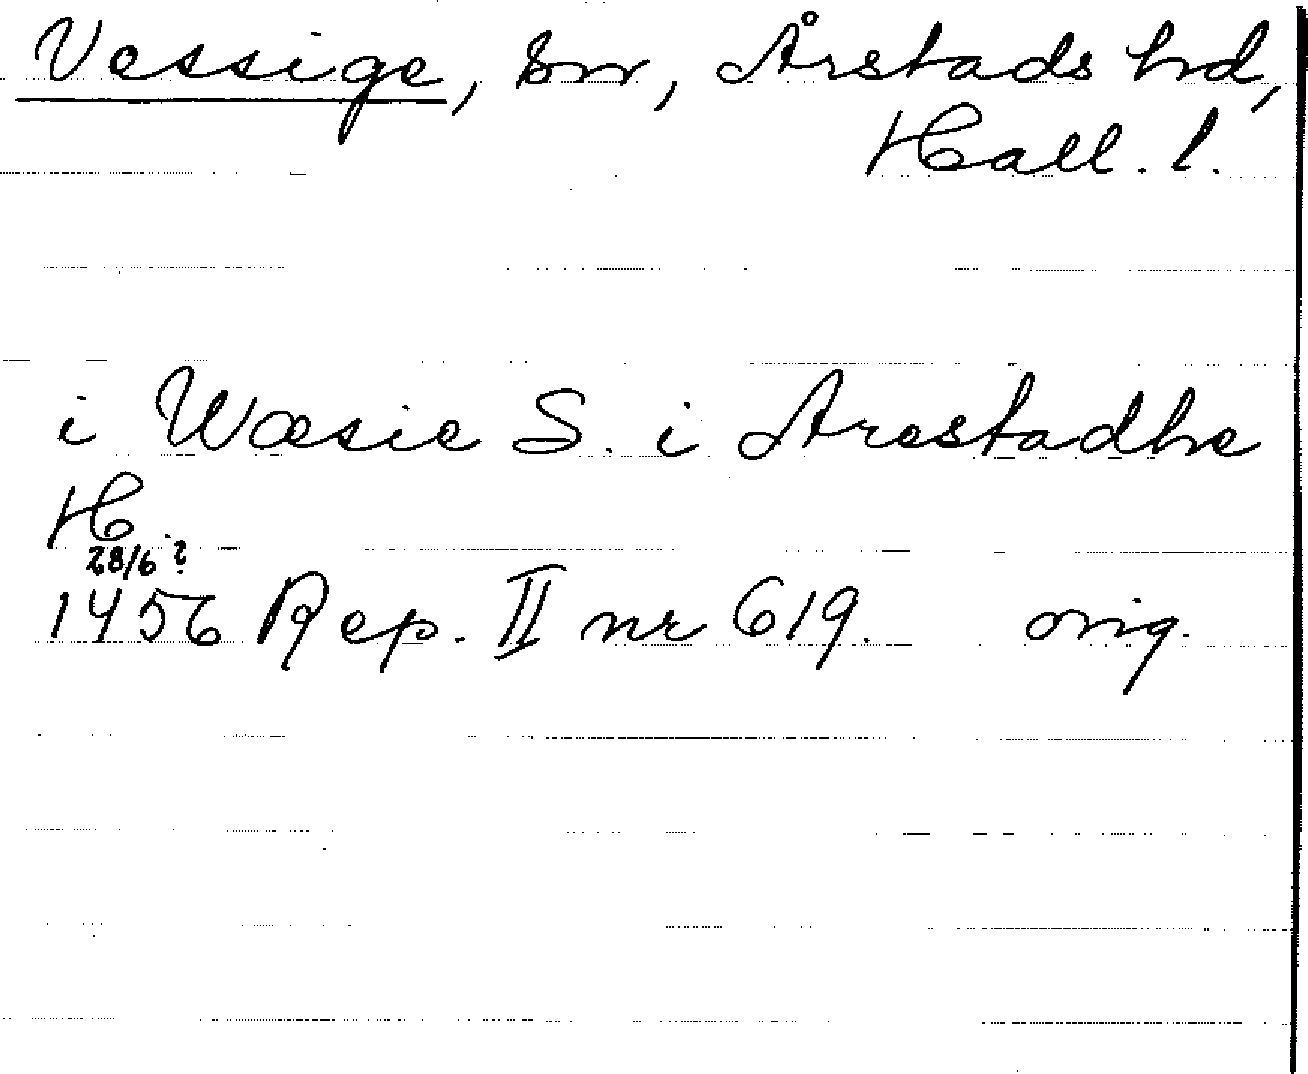 Vessige, sn, Årstads hd,
Hall. l.
i Wæsie S. i Arestadhe
H.
28/6 ?
1456 Rep. II nr 619. orig.